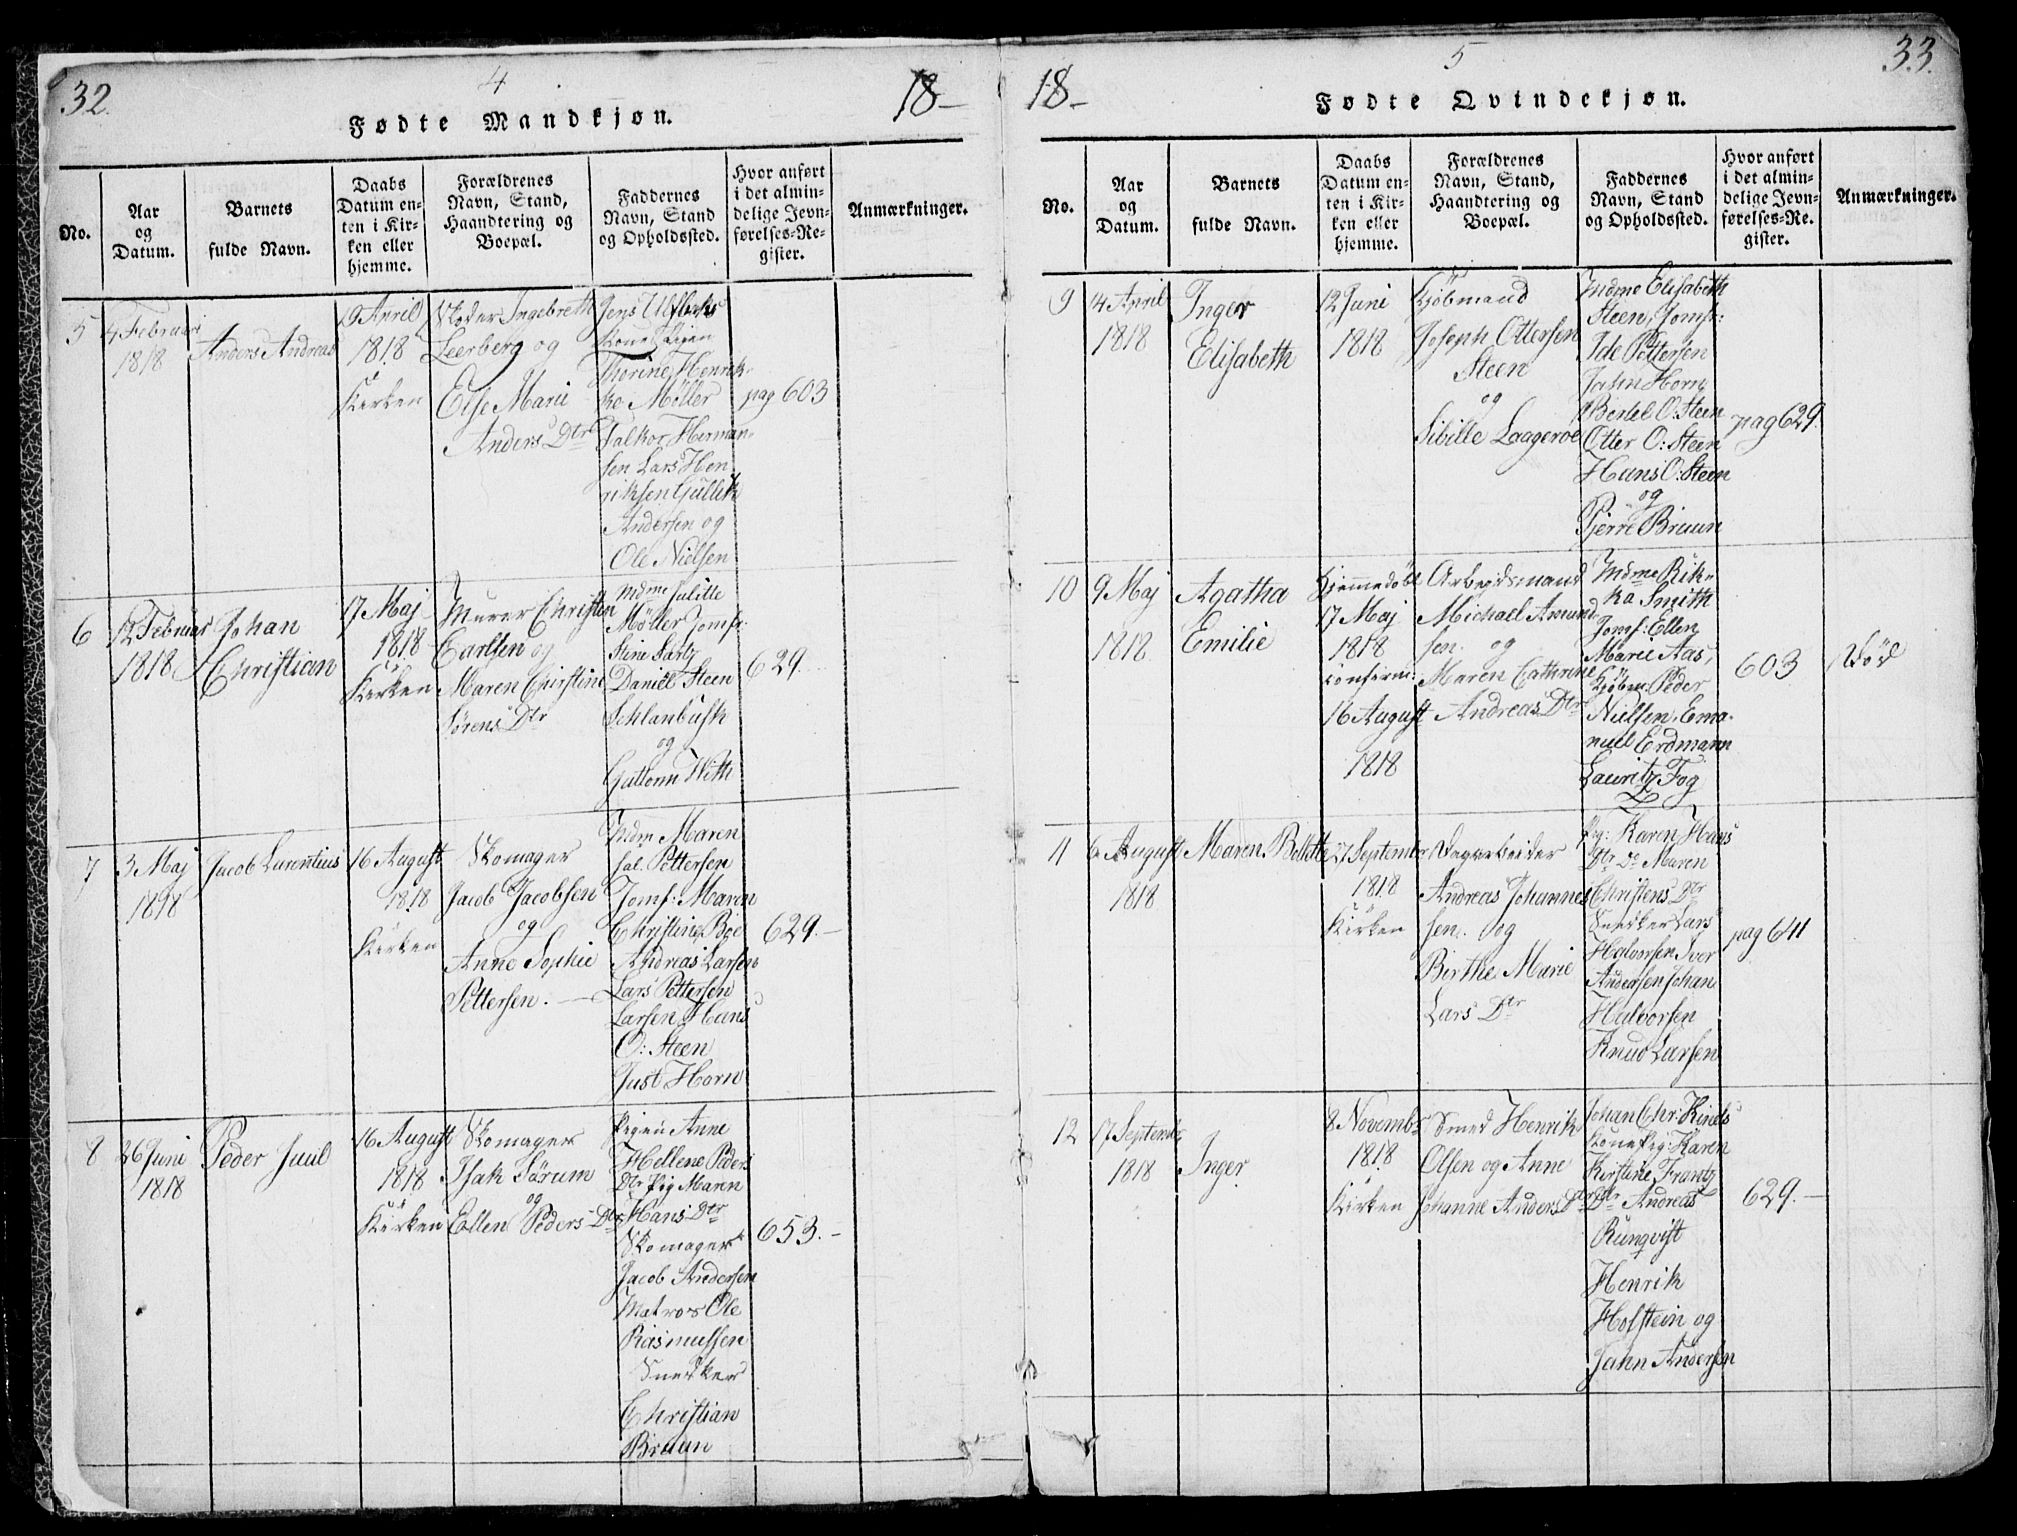 32.
4
18-
Fødte Mandkjøn.
No.
Aar
og
Datum.
Barnets
fulde Navn.
Daabs
Datum en-
ten i Kir-
ken eller
hjemme.
Forældrenes
Navn, Stand,
Haandtering og
Boepæl.
Faddernes
Navn, Stand
og Opholdssted.
Hvor anført
i det almin-
delige Jevn-
førelses-Re-
gister.
Anmærkninger.
5
4 Februari
1818
Anders Andreas
19 April
1818
Kirken
Ingebreth
Leerberg og
Else Marie
Anders Dtr
Jens Ulfbeks
Kone Pigen
Thorine Henrik-
ke Møller
Falkor Herman-
sen Lars Hen-
riksen Gullik
Andersen og
Ole Nielsen
pag 603
6
12 Februar
1818
Johan
Christian
17 Maj
1818
Kirken
Murer Christen
Carlsen og
Maren Chirstine
Sørens Dtr
Mdme Julitte
Møller Jomfr:
Stine Sartz
Daniel Steen
Schlanbusk
og
With
629.
7
3 Maj
1818
Jacob Laurentius
16 August
1818
Kirken
Skomager
Jacob Jacobsen
og
Anne Sophie
Pettersen.
Mdm Maren
sal. Pettersen
Jomf: Maren
Christine Boe
Andreas Larsen
Lars Pettersen
Larsen, Hans
O: Steen
Just Horn
629.-
8
26 Juni
1818
Peder Juul
16 August
1818
Kirken
Skomager
Isak Sørum
og
Ellen Peders Dtr
Pigen Anne
Hellene Peders
Dtr Pig Maren
Hans Dtr
Skomager
Jacob Andersen
Matros Ole
Rasmussen
Snedker
Christian
Bruun
653.-
18-
5
33.
Fødte Qvindekjøn.
No.
Aar
og
Datum.
Barnets
fulde Navn.
Daabs
Datum en-
ten i Kir-
ken eller
hjemme.
Forældrenes
Navn, Stand,
Haandtering og
Boepæl.
Faddernes
Navn, Stand
og Opholdssted.
Hvor anført
i det almin-
delige Jevn-
førelses-Re-
gister.
Anmærkninger.
9
4 April
1818
Inger
Elisabeth
12 Juni
1818
Kjöbmand
Joseph Ottersen
Steen
og
Sibille Laageroe
Mdme Elisabeth
Steen, Jomfr:
Ide Pettersen
Jahn Horn
Bertel O: Steen
Otter O: Steen
Hans O: Steen
og
Pjerre Bruun
pag 629.
10
9 Maj
1818.
Agatha
Emilie
Hjemmedöbt
17 Maj
1818
confirm:
16 August
1818
Arbejdsmand
Michael Amund
sen. og
Maren Cathrine
Andreas Dtr
Mdme Rik-
ka Smith
Jomf: Ellen
Marie Aas,
Kjøbm: Peder
Nielsen, Ema-
nuel Erdmann
Lauritz Fog
603
Död
11
6 August
1818
Maren Bolette
27 September
1818
Kirken
Dagarbeider
Andreas Johannes
sen. og
Birthe Marie
Lars Dtr
Pig: Karen Hans
Dtr Do Maren
Christens Dtr
Snedker Lars
Halvorsen Iver
Andersen Johan
Halvorsen
Knud Larsen
pag 641
12
17 Septembr
1818
Inger
8 Novembr
1818
Kirken
Smed Henrik
Olsen og Anne
Johanne Anders Dtr
Johan Chr: Kinds
Kone Pig: Karen
Kirstine Frantz
Dtr Andreas
Runqvist
Henrik
Holstein og
Jahn Andersen
629.-